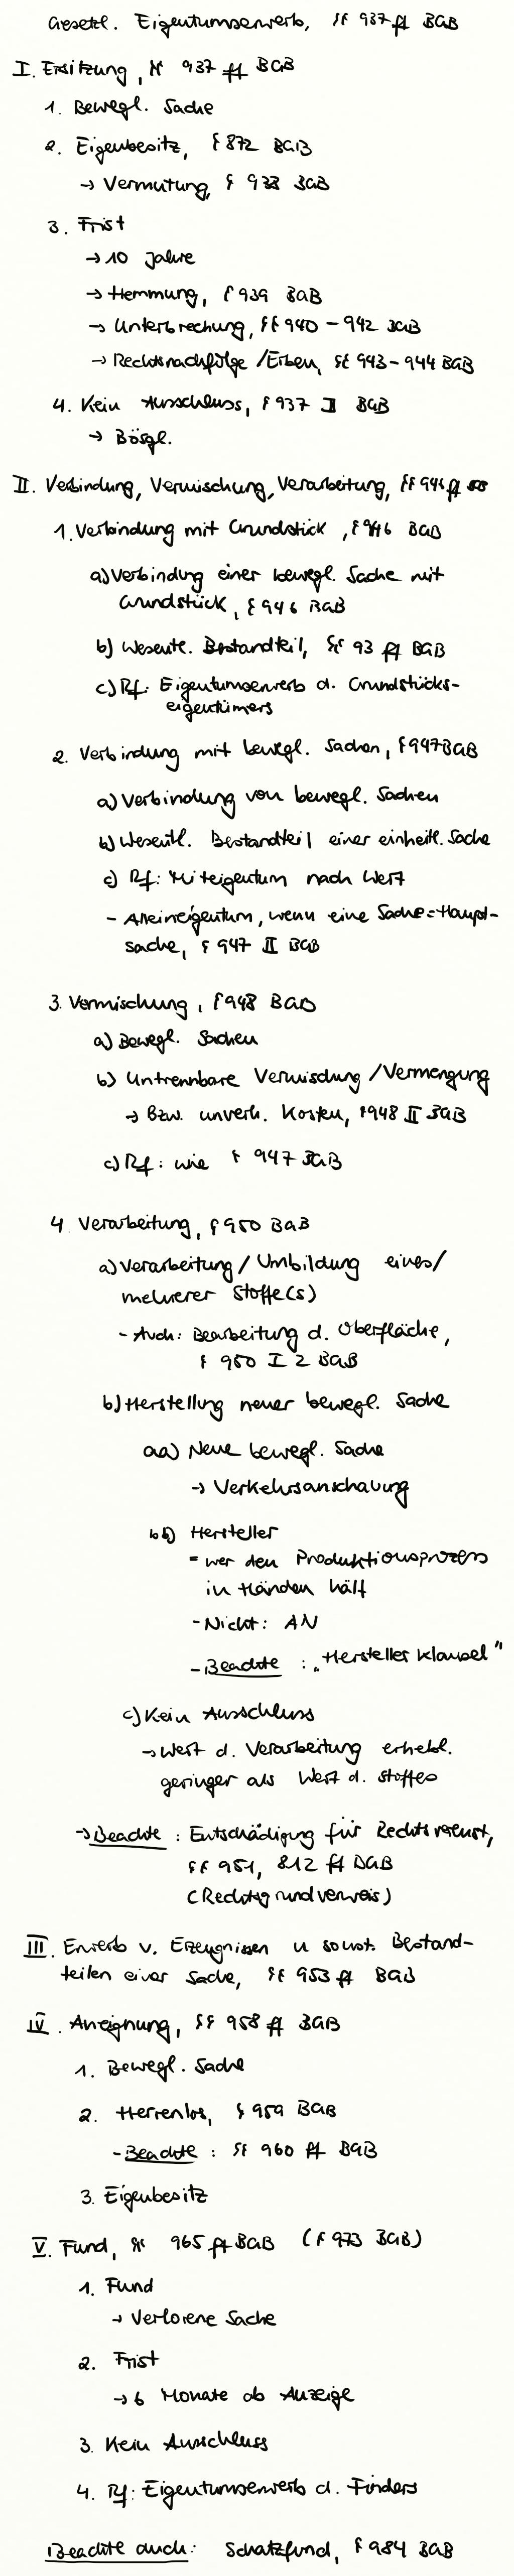 Gesetzl. Eigentumserwerb, §§ 937 ff BGB
I. Ersitzung, §§ 937 ff BGB
1. Bewegl. Sache
2. Eigenbesitz, § 872 BGB
→ Vermutung, § 938 BGB
3. Frist
→ 10 Jahre
→ Hemmung, § 939 BGB
→ Unterbrechung, §§ 940 - 942 BGB
→ Rechtsnachfolge / Erben, §§ 943 - 944 BGB
4. Kein Ausschluss, § 937 II BGB
→ Bösgl.
II. Verbindung, Vermischung, Verarbeitung, §§ 946 ff BGB
1. Verbindung mit Grundstück, § 946 BGB
a) Verbindung einer bewegl. Sache mit
Grundstück, § 946 BGB
b) Wesentl. Bestandteil, §§ 93 ff BGB
c) Rf: Eigentumserwerb d. Grundstücks-
eigentümers
2. Verbindung mit bewegl. Sachen, § 947 BGB
a) Verbindung von bewegl. Sachen
b) Wesentl. Bestandteil einer einheitl. Sache
c) Rf: Miteigentum nach Wert
- Alleineigentum, wenn eine Sache = Haupt-
sache, § 947 II BGB
3. Vermischung, § 948 BGB
a) Bewegl. Sachen
b) Untrennbare Vermischung / Vermengung
→ Bzw. unverh. Kosten, § 948 II BGB
c) Rf: wie § 947 BGB
4. Verarbeitung, § 950 BGB
a) Verarbeitung / Umbildung eines/
mehrerer Stoffe(s)
- Auch: Bearbeitung d. Oberfläche,
§ 950 I 2 BGB
b) Herstellung neuer bewegl. Sache
aa) Neue bewegl. Sache
→ Verkehrsanschauung
bb) Hersteller
= wer den Produktionsprozess
in Händen hält
- Nicht: AN
- Beachte: „Hersteller Klausel"
c) Kein Ausschluss
→ Wert d. Verarbeitung erhebl.
geringer als Wert d. Stoffes
→ Beachte: Entschädigung für Rechtsverlust,
§§ 951, 812 ff BGB
(Rechtsgrundverweis)
III. Erwerb v. Erzeugnissen u sonst. Bestand-
teilen einer Sache, §§ 953 ff BGB
IV. Aneignung, §§ 958 ff BGB
1. Bewegl. Sache
2. Herrenlos, § 959 BGB
- Beachte: §§ 960 ff BGB
3. Eigenbesitz
V. Fund, §§ 965 ff BGB (§ 973 BGB)
1. Fund
→ Verlorene Sache
2. Frist
→ 6 Monate ab Anzeige
3. Kein Ausschluss
4. Rf: Eigentumserwerb d. Finders
Beachte auch: Schatzfund, § 984 BGB